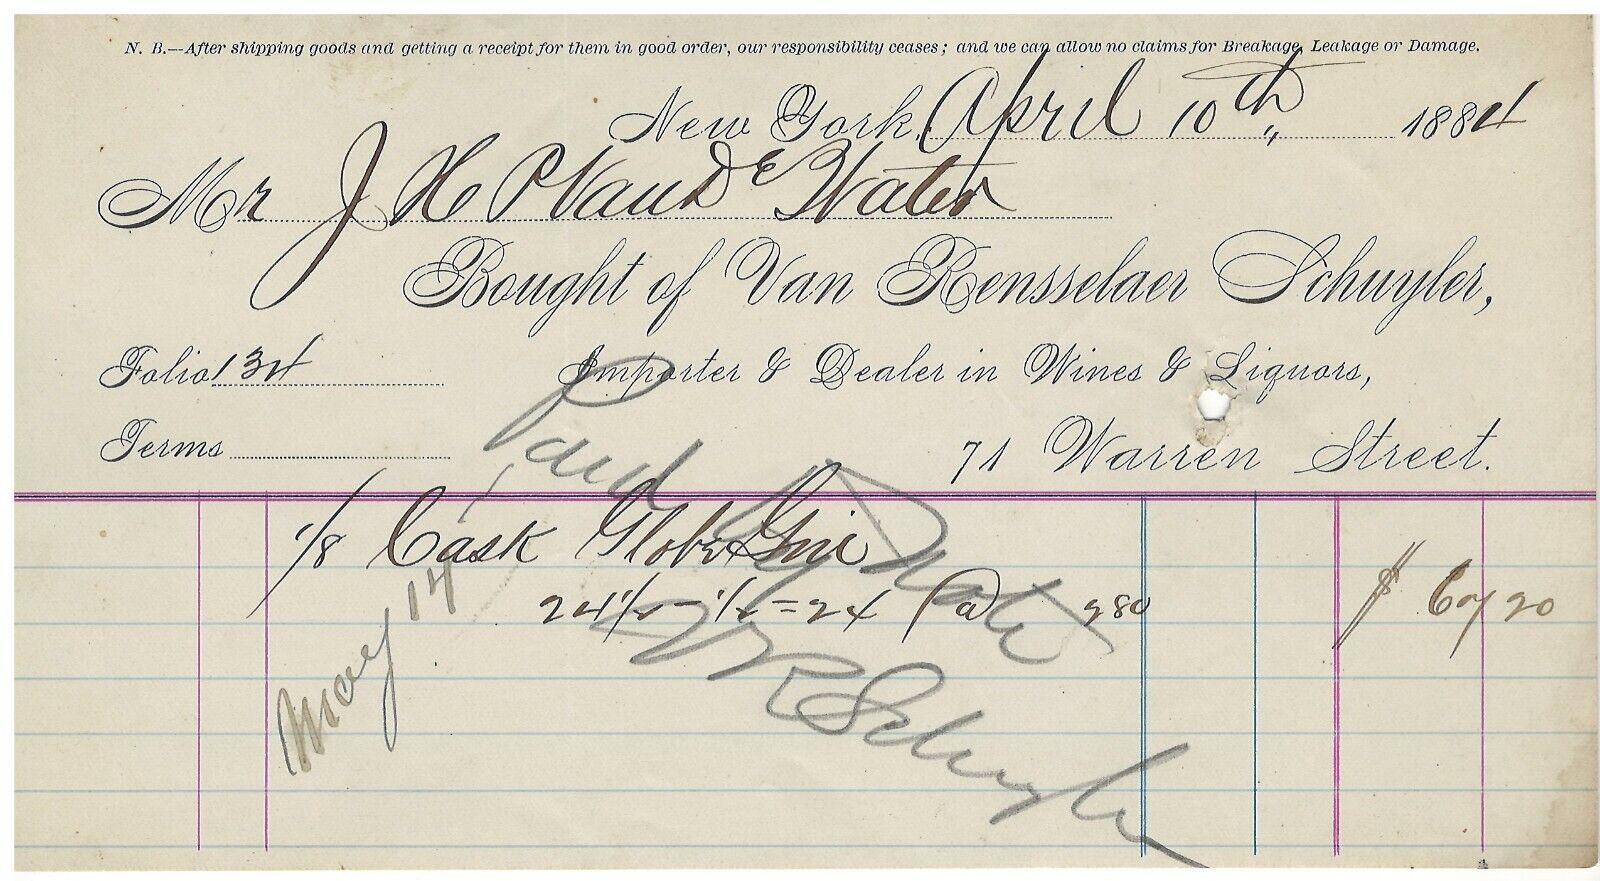 N. B.—After shipping goods and getting a receipt for them in good order, our responsibility ceases; and we can allow no claims for Breakage, Leakage or Damage.
New York, April 10th, 1884
Mr J H P VanDe Water
Bought of Van Rensselaer Schuyler,
Folio 134
Importer & Dealer in Wines & Liquors,
Terms
71 Warren Street.
1/8 Cask Globe Gin
24 1/2 – 1/2 = 24 @ 280 $ 67 20
Paid By Note
V R Schuyler
May 14